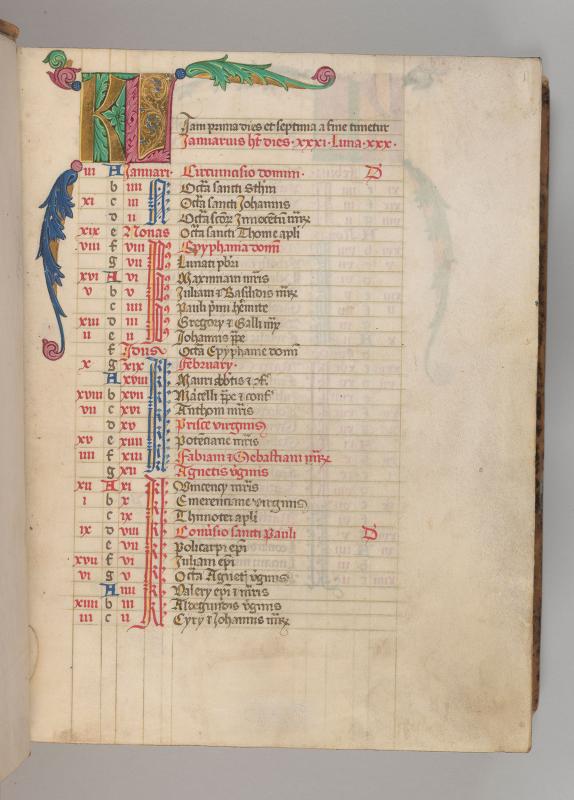 KL
Jam prima dies et septima a fine timetur
Januarius ht dies · xxxi · Luna · xxx ·
iii A Januarii Circumcisio domini · D
b iiii N Octa sancti Sthm
xi c iii Octa sancti Johannis
d ii Octa scor Innocentu mrz
xix e Nonas Octa sancti Thome apli
viii f viii Epyphania domi
g vii Luciani pbri
xvi A vi Maximiani mris
v b v Juliani et Basilidis mrz
c iiii Pauli primi hmite
xiii d iii Gregory et Galli mr
ii e ii Johannis ppe
f Idus Octa Epyphanie domi
x g xix February ·
A xviii Mauri abbtis et cf
xviii b xvii Marcelli ppe et conf
vii c xvi Anthoni mris
d xv Prisce virginis
xv e xiiii Potenciane mris
iiii f xiii Fabiani et Sebastiani mrz
g xii Agnetis vginis
xii A xi Vincency mris
i b x Emerenciane virginis
c ix Thimotei apli
ix d viii Conversio sancti Pauli D
e vii Policarpi epi
xvii f vi Juliani epi
vi g v Octa Agnetis vginis
A iiii Valery epi et mris
xiiii b iii Aldegundis vginis
iii c ii Cyry et Johannis mrz